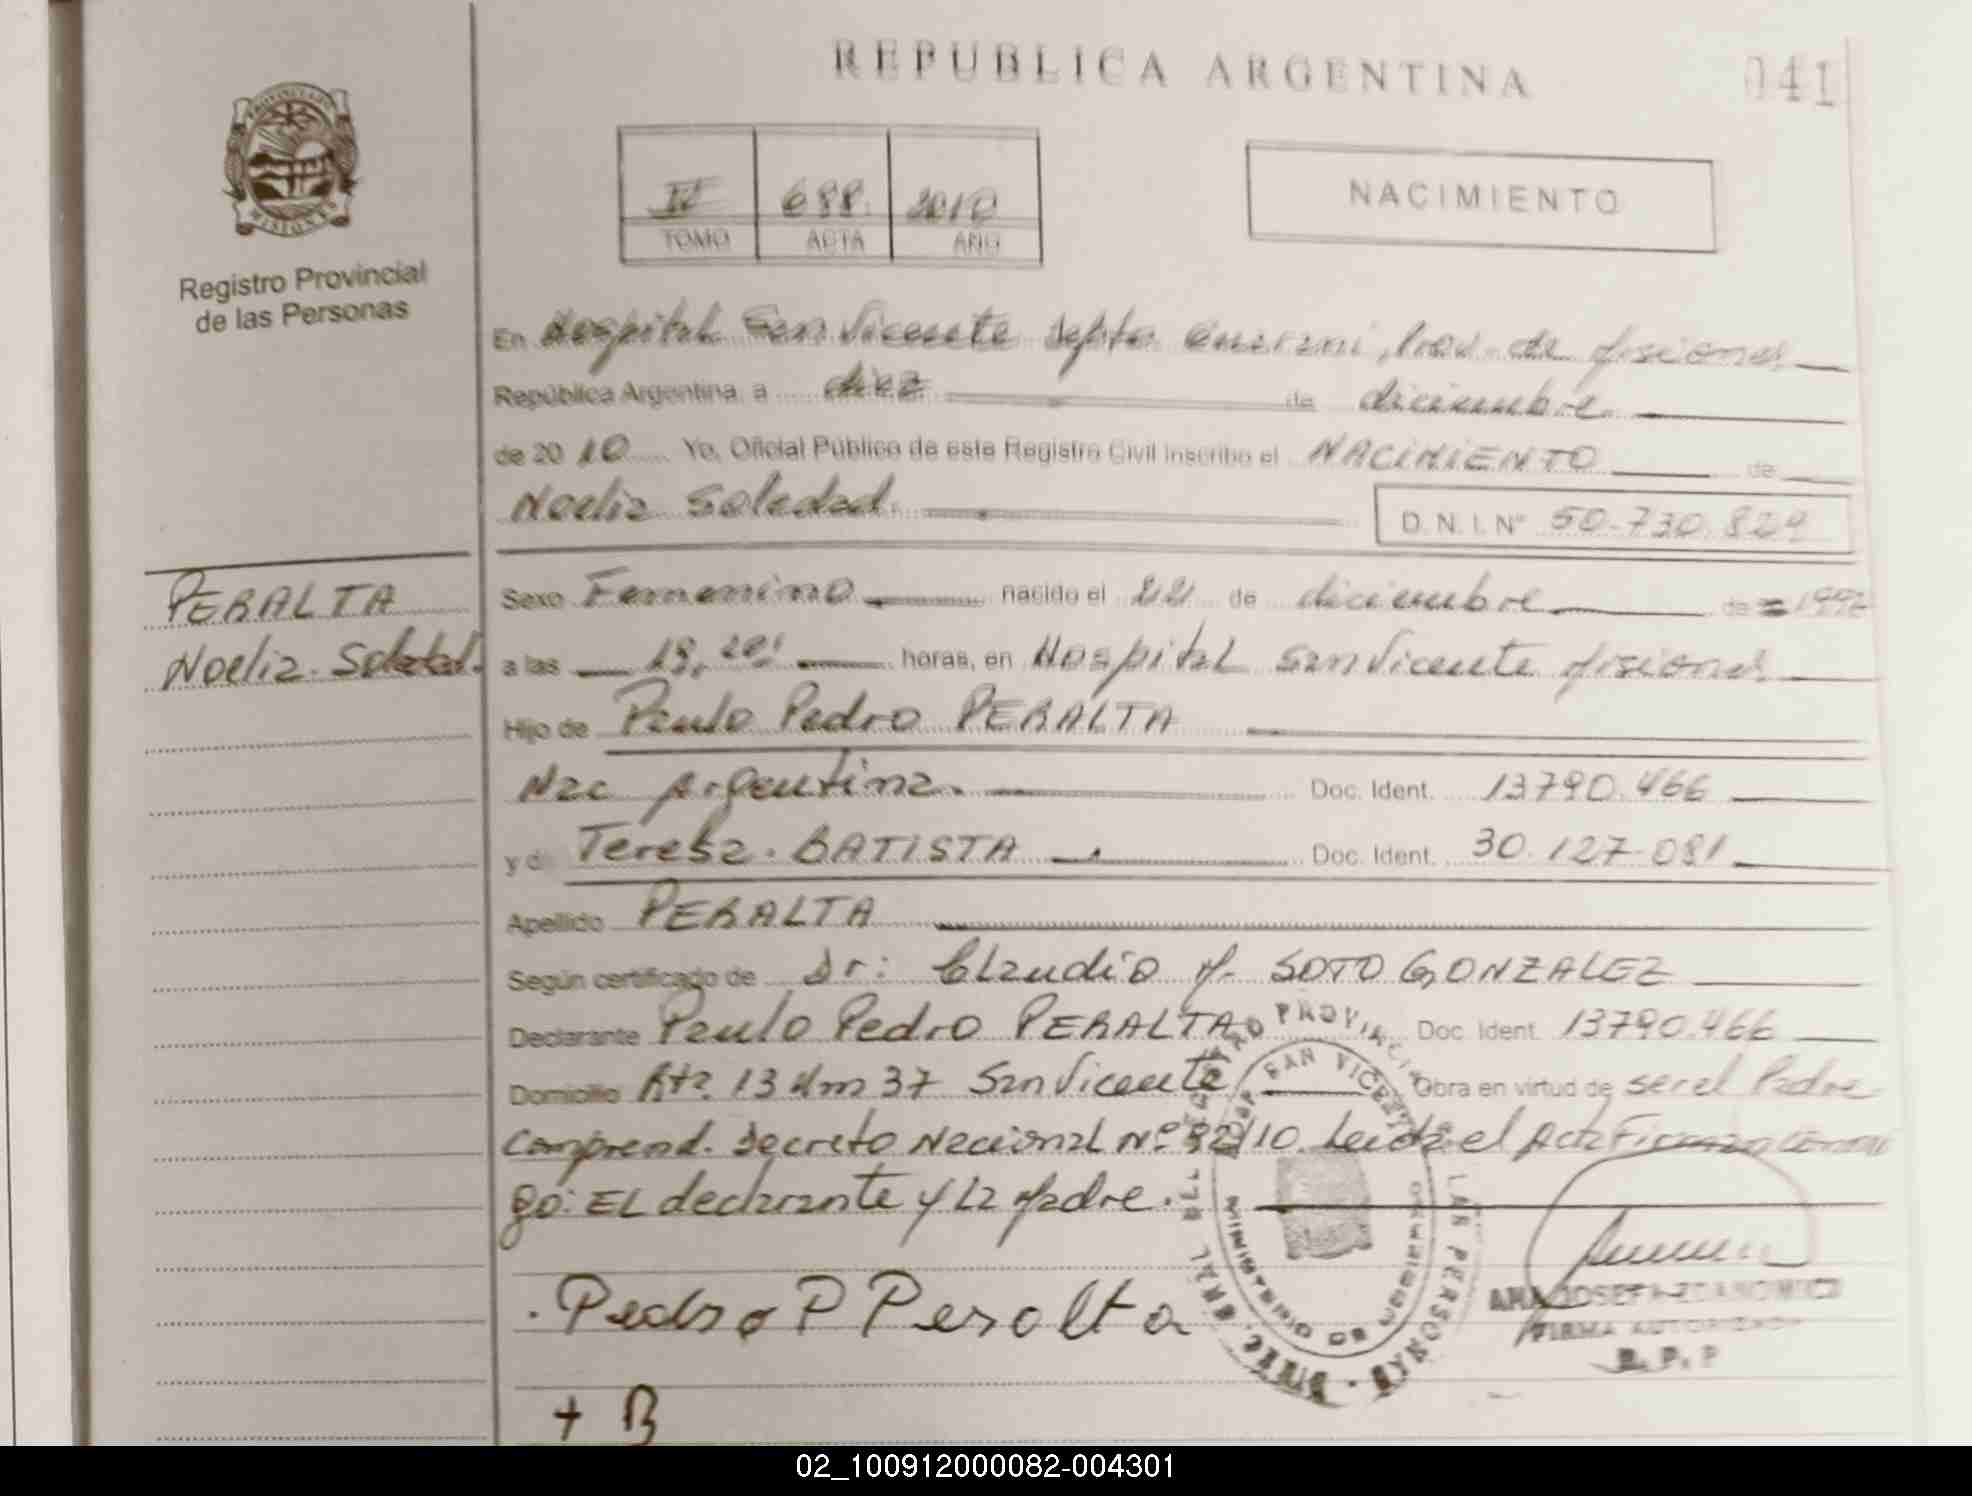 REPUBLICA ARGENTINA
041
PROVINCIA DE MISIONES
Registro Provincial
de las Personas
II 688. 2010
TOMO ACTA AÑO
NACIMIENTO
En Hospital San Vicente Depto Guarani, Prov. de Misiones
República Argentina, a diez de diciembre
de 2010 Yo, Oficial Público de este Registro Civil inscribo el NACIMIENTO de
Noelia Soledad. D. N. I. Nº 50.730.829
PERALTA
Noelia Soledad.
Sexo Femenino nacido el 22 de diciembre de
a las horas, en Hospital San Vicente Misiones
Hijo de Paulo Pedro PERALTA
Nac Argentina. Doc. Ident. 13790.466
y d Teresa. BATISTA Doc. Ident. 30.127.081
Apellido PERALTA
Según certificado de Dr: Claudio M. SOTO GONZALEZ
Declarante Paulo Pedro PERALTA Doc. Ident. 13790.466
Domicilio Rta. 13 Km 37 San Vicente Obra en virtud de ser el Padre
Comprend. Decreto Nacional Nº 92/10. Leida el Acta Firman conmi
go: EL declarante y La Madre.
Pedro P Peralta
REGISTRO PROVINCIAL DE LAS PERSONAS
SAN VICENTE
ANA JOSEFA
FIRMA AUTORIZADA
R. P. P
+ B
02_100912000082-004301